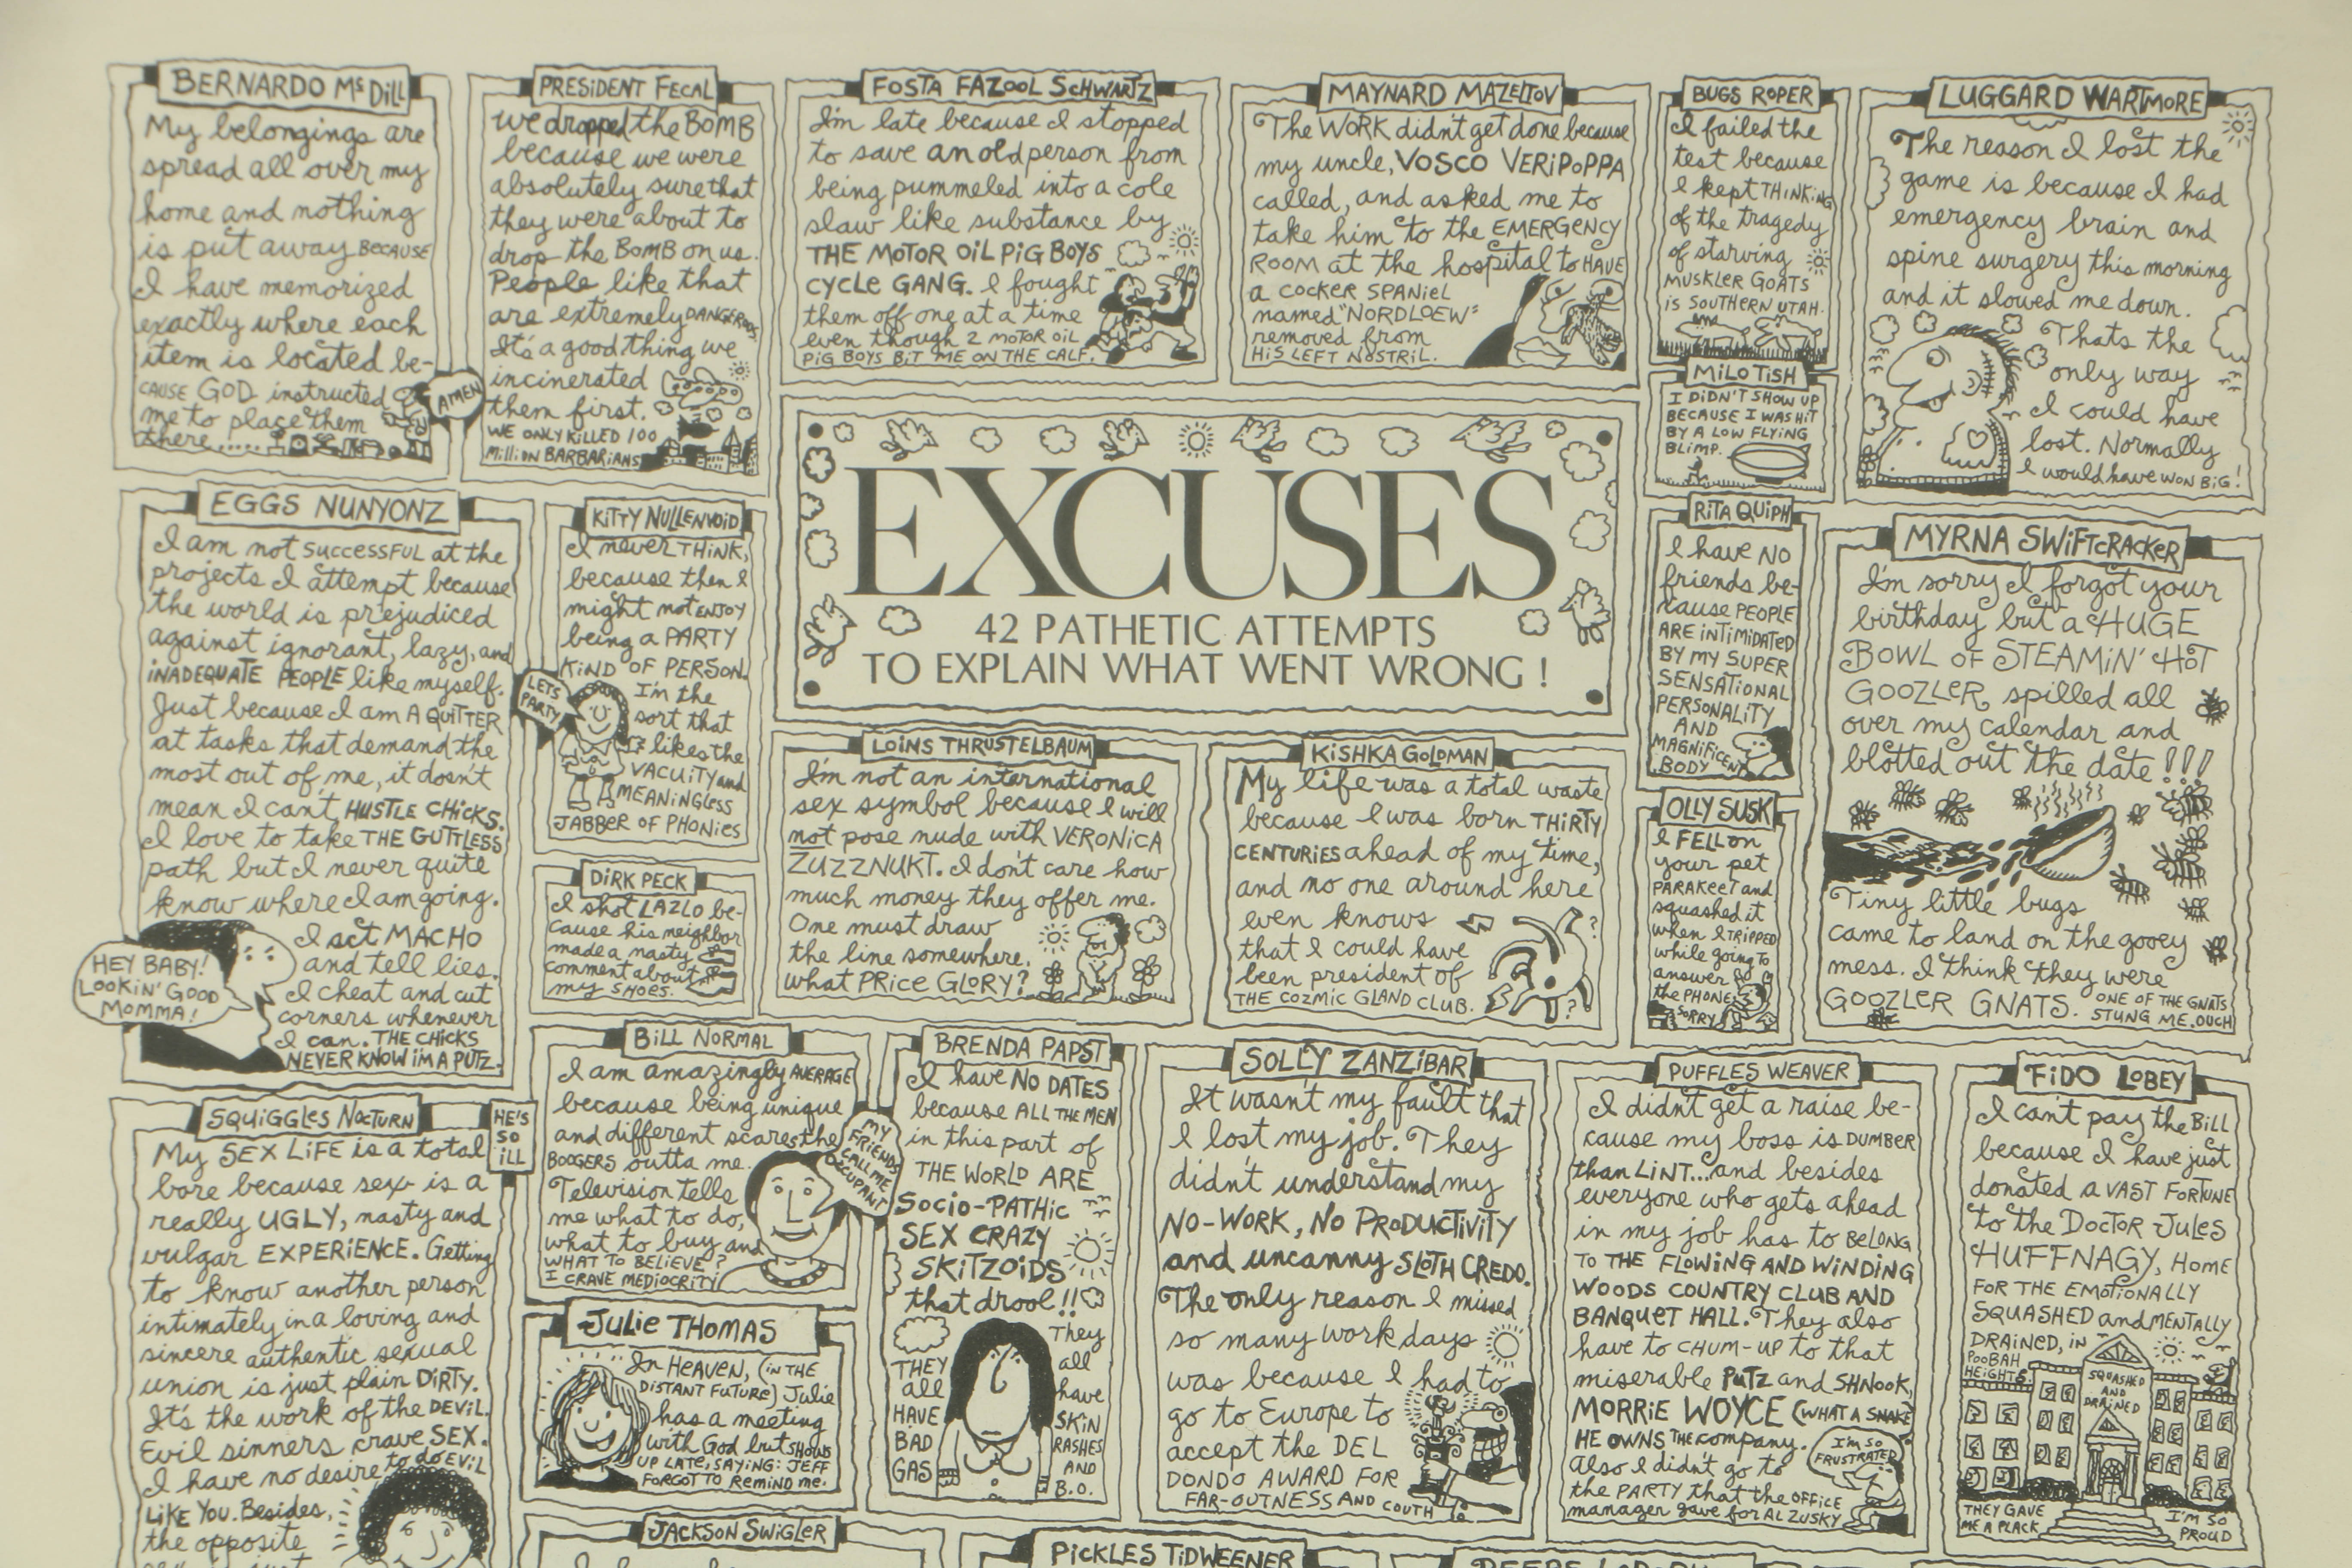 BERNARDO McDiLL
My belongings are
spread all over my
home and nothing
is put away BECAUSE
I have memorized
exactly where each
item is located be-
CAUSE GOD instructed
me to place them
there.....
AMEN
PRESIDENT FECAL
we dropped the BOMB
because we were
absolutely sure that
they were about to
drop the BOMB on us.
People like that
are extremely DANGEROUS
It's a good thing we
incinerated
them first.
WE ONLY KiLLED 100
MiLLiON BARBARIANS
FOSTA FAZOOL SCHWARTZ
I'm late because I stopped
to save an old person from
being pummeled into a cole
slaw like substance by
THE MOTOR OiL PiG BOYS
CYCLE GANG. I fought
them off one at a time
even though 2 MOTOR OiL
PiG BOYS BiT ME ON THE CALF.
MAYNARD MAZELTOV
The WORK didn't get done because
my uncle, VOSCO VERiPOPPA
called, and asked me to
take him to the EMERGENCY
ROOM at the hospital to HAVE
a COCKER SPANiEL
named "NORDLOEW"
removed from
HiS LEFT NOSTRiL.
BUGS ROPER
I failed the
test because
I kept THiNKiNG
of the tragedy
of starving
MUSKLER GOATS
iS SOUTHERN UTAH.
MiLO TiSH
I DiDN'T SHOW UP
BECAUSE I WAS HiT
BY A LOW FLYiNG
BLiMP.
LUGGARD WARTMORE
The reason I lost the
game is because I had
emergency brain and
spine surgery this morning
and it slowed me down.
Thats the
only way
I could have
lost. Normally
I would have WON BiG!
EXCUSES
42 PATHETIC ATTEMPTS
TO EXPLAIN WHAT WENT WRONG!
EGGS NUNYONZ
I am not SUCCESSFUL at the
projects I attempt because
the world is prejudiced
against ignorant, lazy, and
iNADEQUATE PEOPLE like myself.
Just because I am A QUiTTER
at tasks that demand the
most out of me, it doesn't
mean I can't HUSTLE CHiCKS.
I love to take THE GUTTLESS
path but I never quite
know where I am going.
I act MACHO
and tell lies.
I cheat and cut
corners whenever
I can. THE CHiCKS
NEVER KNOW iM A PUTZ.
HEY BABY!
LOOKiN' GOOD
MOMMA!
KiTTY NULLENVOiD
I never THiNK,
because then I
might not ENJOY
being a PARTY
KiND OF PERSON.
I'm the
sort that
likes the
VACUiTY and
MEANiNGLESS
JABBER OF PHONiES
LETS
PARTY
DiRK PECK
I shot LAZLO be-
cause his neighbor
made a nasty
comment about
my SHOES.
LOiNS THRUSTELBAUM
I'm not an international
sex symbol because I will
not pose nude with VERONiCA
ZUZZNUKT. I don't care how
much money they offer me.
One must draw
the line somewhere.
what PRiCE GLORY?
KiSHKA GOLDMAN
My life was a total waste
because I was born THiRTY
CENTURiES ahead of my time,
and no one around here
even knows
that I could have
been president of
THE COZMiC GLAND CLUB.
? ?
RiTA QUiPH
I have NO
friends be-
cause PEOPLE
ARE iNTiMiDATED
BY MY SUPER
SENSATiONAL
PERSONALiTY
AND
MAGNiFiCENT
BODY
OLLY SUSK
I FELL on
your pet
PARAKEET and
squashed it
when I TRiPPED
while going to
answer
the PHONE.
SORRY
MYRNA SWiFTCRACKER
I'm sorry I forgot your
birthday but a HUGE
BOWL OF STEAMiN' HOT
GOOZLER, spilled all
over my calendar and
blotted out the date!!!
Tiny little bugs
came to land on the gooey
mess. I think they were
GOOZLER GNATS. ONE OF THE GNATS
STUNG ME. OUCH
SQUiGGLES NOCTURN
My SEX LiFE is a total
bore because sex is a
really UGLY, nasty and
vulgar EXPERiENCE. Getting
to know another person
intimately in a loving and
sincere authentic sexual
union is just plain DiRTY.
It's the work of the DEViL.
Evil sinners crave SEX.
I have no desire to do EViL
LiKE YOU. Besides,
the opposite
HE'S
SO
iLL
BiLL NORMAL
I am amazingly AVERAGE
because being unique
and different scares the
BOOGERS outta me.
Television tells
me what to do,
what to buy and
WHAT TO BELiEVE?
I CRAVE MEDiOCRiTY
MY
FRiENDS
CALL ME
OCCUPANT
JULiE THOMAS
In HEAVEN, (iN THE
DiSTANT FUTURE) Julie
has a meeting
with God but SHOWS
UP LATE, SAYiNG: JEFF
FORGOT TO REMiND ME.
BRENDA PAPST
I have NO DATES
because ALL THE MEN
in this part of
THE WORLD ARE
SOCiO-PATHiC
SEX CRAZY
SKiTZOiDS
that drool!!
THEY
all
HAVE
BAD
GAS
They
all
have
SKiN
RASHES
AND
B.O.
SOLLY ZANZiBAR
It wasn't my fault that
I lost my job. They
didn't understand my
NO-WORK, NO PRODUCTiViTY
and uncanny SLOTH CREDO.
The only reason I missed
so many work days
was because I had to
go to Europe to
accept the DEL
DONDO AWARD FOR
FAR-OUTNESS AND COUTH
PUFFLES WEAVER
I didn't get a raise be-
cause my boss is DUMBER
than LiNT...and besides
everyone who gets ahead
in my job has to BELONG
TO THE FLOWiNG AND WiNDiNG
WOODS COUNTRY CLUB AND
BANQUET HALL. They also
have to CHUM-UP to that
miserable PUTZ and SHNOOK,
MORRiE WOYCE (WHAT A SNAKE)
HE OWNS THE company.
Also I didn't go to
the PARTY that the OFFiCE
manager gave for AL ZUSKY
I'M SO
FRUSTRATED
FiDO LOBEY
I can't pay the BiLL
because I have just
donated a VAST FORTUNE
to the DOCTOR JULES
HUFFNAGY, HOME
FOR THE EMOTiONALLY
SQUASHED and MENTALLY
DRAiNED, iN
POOBAH
HEiGHTS.
SQUASHED
AND
DRAiNED
THEY GAVE
ME A PLACK
I'M SO
PROUD
JACKSON SWiGLER
PiCKLES TiDWEENER